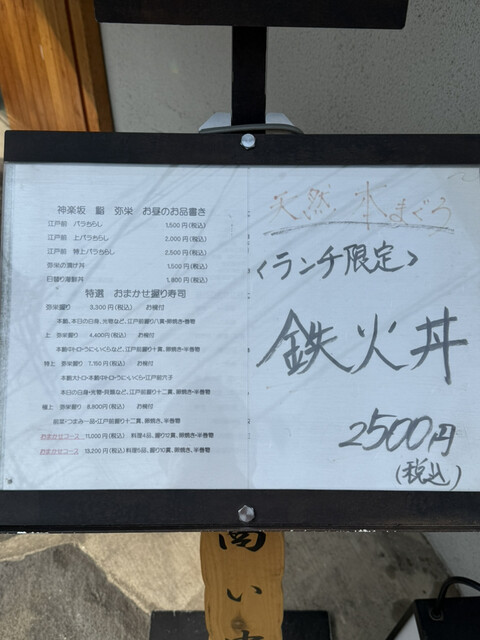 神楽坂　鮨　弥栄　お昼のお品書き
江戸前　バラちらし　1,500円(税込)
江戸前　上バラちらし　2,000円(税込)
江戸前　特上バラちらし　2,500円(税込)
弥栄の漬け丼　1,500円(税込)
日替り海鮮丼　1,800円(税込)
特選　おまかせ握り寿司
弥栄握り　3,300円(税込)　お椀付
本鮪、本日の白身、光物など、江戸前握り八貫・卵焼き・巻物
上　弥栄握り　4,400円(税込)　お椀付
本鮪中トロ・うに・いくらなど、江戸前握り十貫、卵焼き・半巻物
特上　弥栄握り　7,150円(税込)　お椀付
本鮪大トロ・本鮪中トロ・うに・いくら・江戸前穴子
本日の白身・光物・貝類など、江戸前握り十二貫、卵焼き・半巻物
極上　弥栄握り　8,800円(税込)　お椀付
前菜・つまみ一品・江戸前握り十二貫、卵焼き、半巻物
おまかせコース　11,000円(税込)　料理4品、握り12貫、卵焼き、半巻物
おまかせコース　13,200円(税込)料理5品、握り10貫、卵焼き、半巻物
天然　本まぐろ
<ランチ限定>
鉄火丼
2500円
(税込)